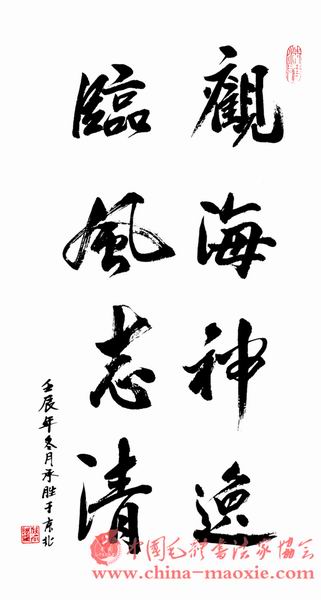 觀海神逸
臨風志清
壬辰年冬月承胜于京北
中国毛体书法家协会
www.china-maoxie.com